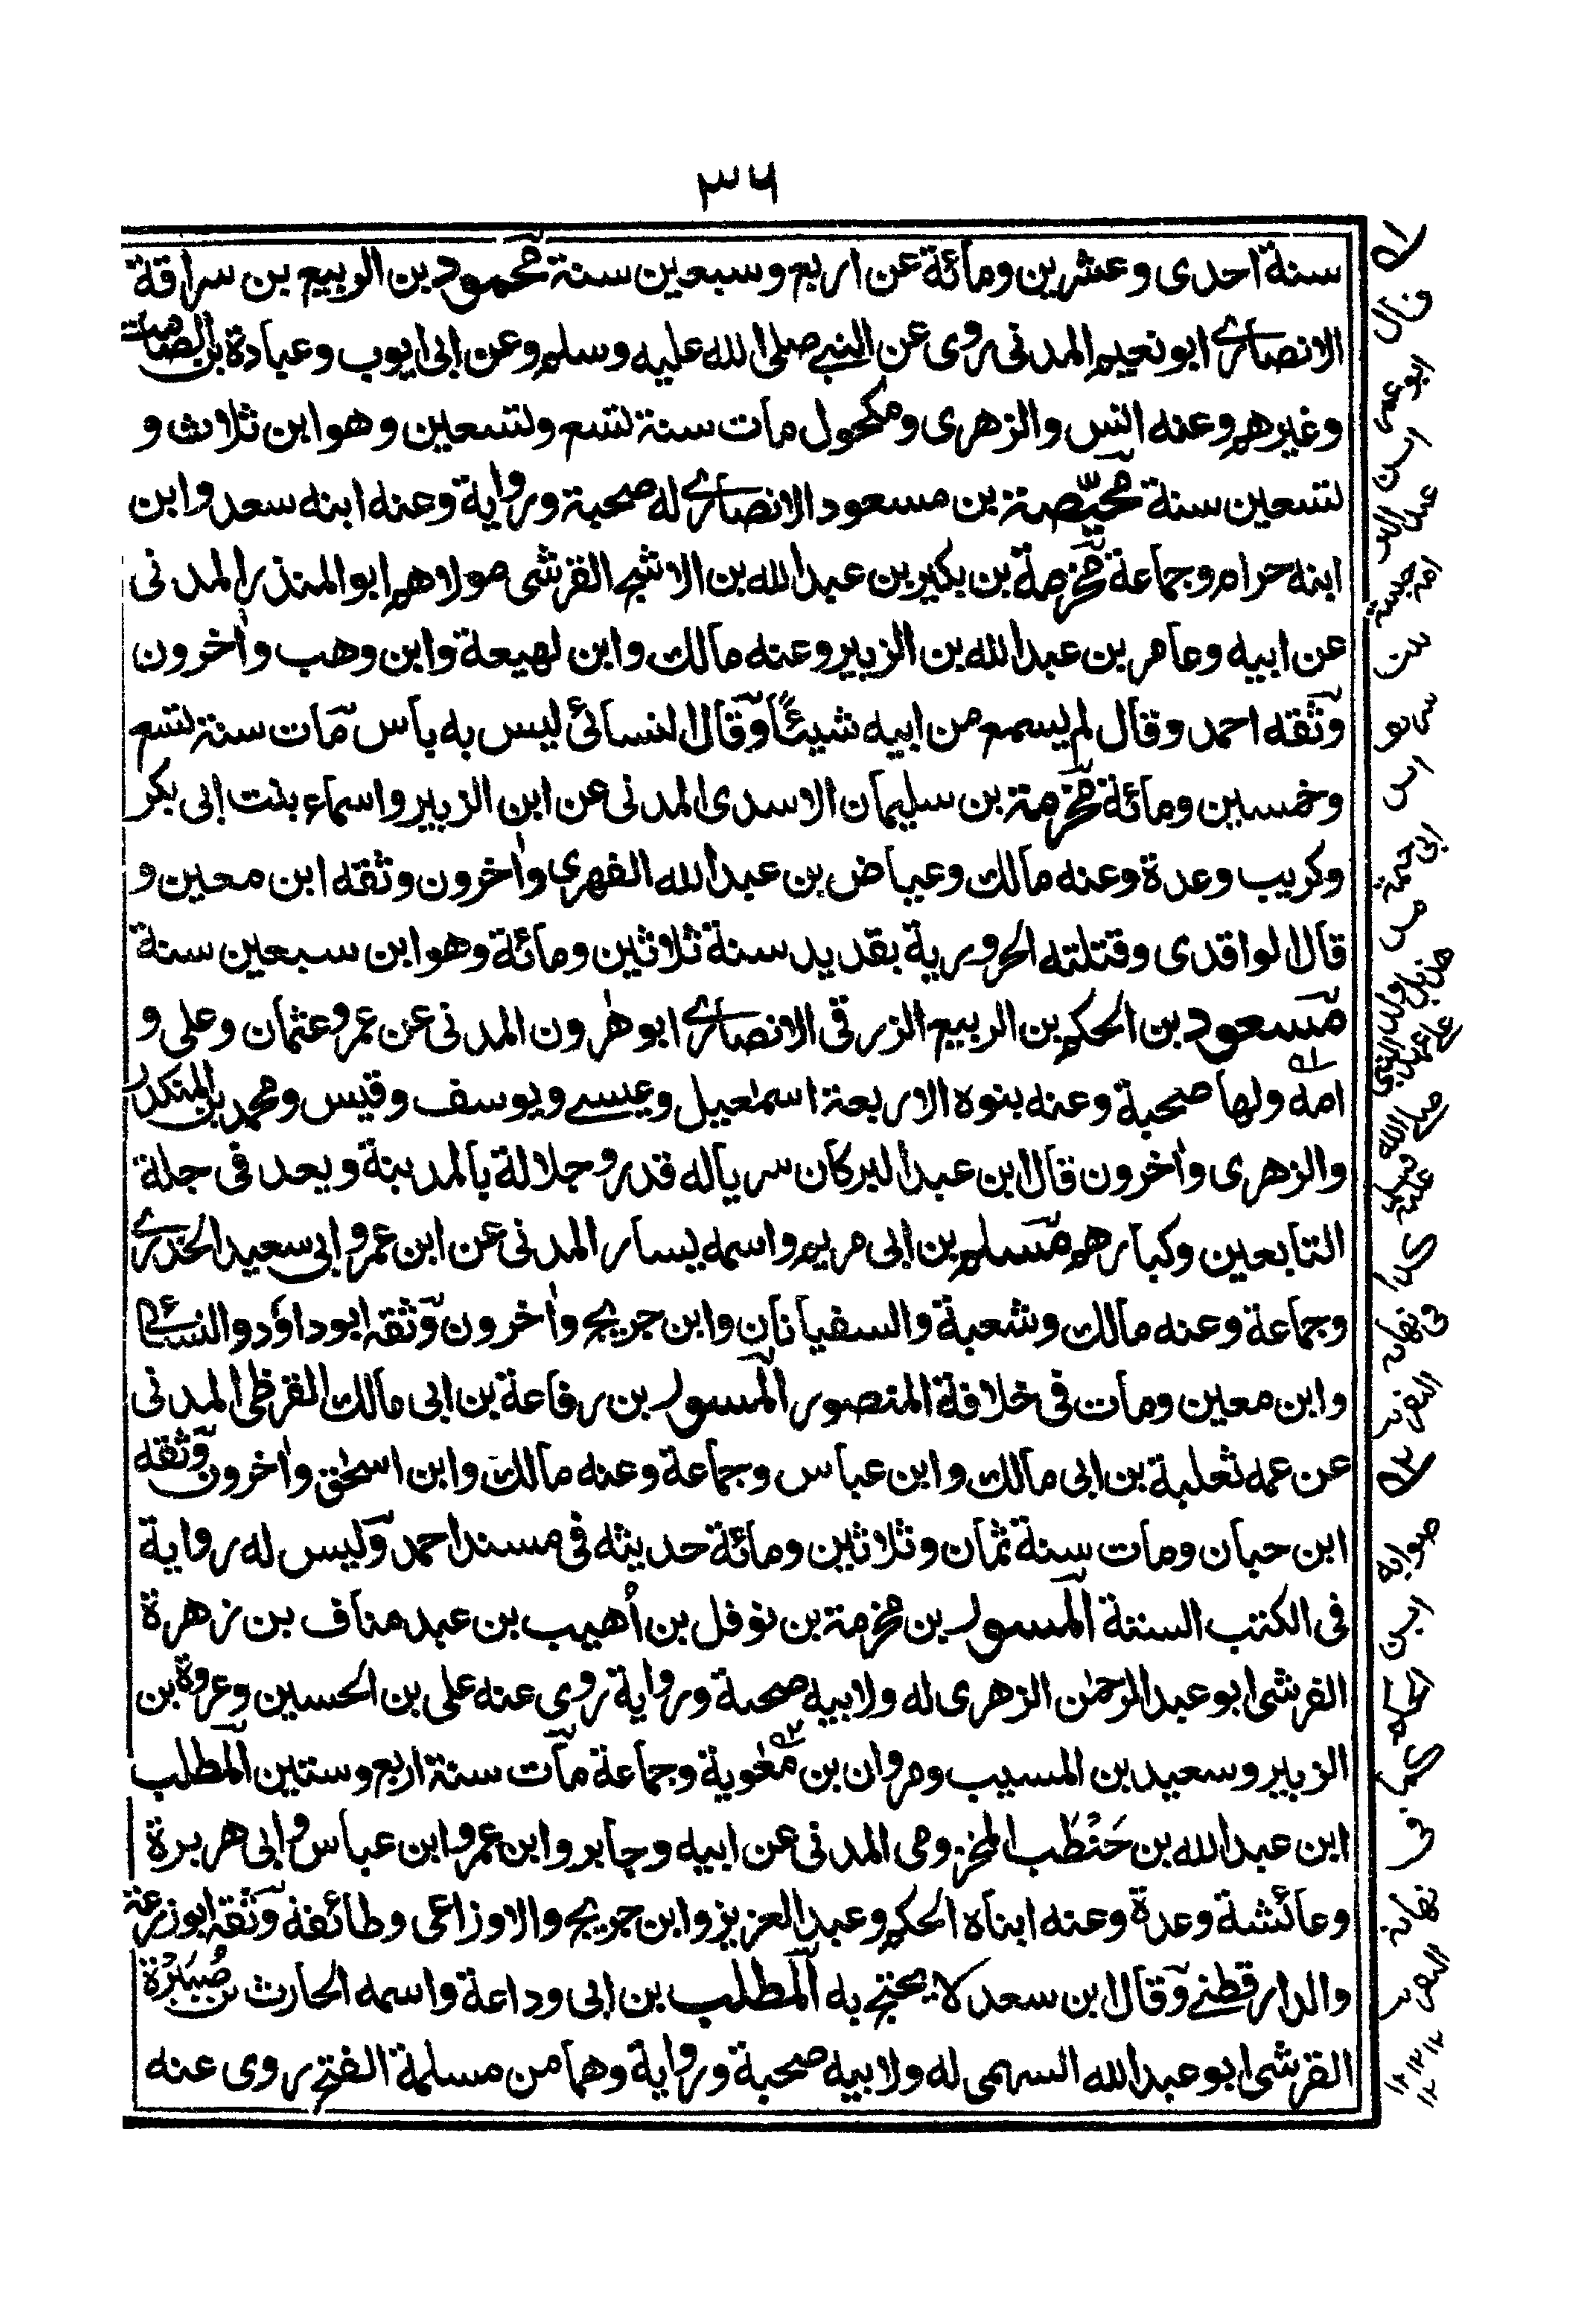 ۳۶
سنة احدى وعشرين ومائة عن اربع وسبعين سنة محمود بن الربيع بن سراقة
الانصاري ابو نعيم المدنى روى عن النبي صلى الله عليه وسلم وعن ابى ايوب وعبادة بن الصامت
وغيرهم وعنه انس والزهرى ومكحول مات سنة تسع وتسعين وهو ابن ثلاث و
تسعين سنة محيّصة بن مسعود الانصاري له صحبة ورواية وعنه ابنه سعد وابن
ابنه حرام وجماعة مخرمة بن بكير بن عبد الله بن الاشج القرشى مولاهم ابو المنذر المدنى
عن ابيه وعامر بن عبد الله بن الزبير وعنه مالك وابن لهيعة وابن وهب واٰخرون
وثقه احمد وقال لم يسمع من ابيه شيئًا وقال النسائى ليس به باس مات سنة تسع
وخمسين ومائة مخرمة بن سليمان الاسدى المدنى عن ابن الزبير واسماء بنت ابى بكر
وكريب وعدة وعنه مالك وعياض بن عبد الله الفهرى واٰخرون وثقه ابن معين و
قال الواقدى وقتلته الحرورية بقديد سنة ثلاثين ومائة وهو ابن سبعين سنة
مسعود بن الحكم بن الربيع الزرقى الانصاري ابو هٰرون المدنى عن عمر وعثمان وعلى و
امه ولها صحبة وعنه بنوه الاربعة اسمٰعيل وعيسے ويوسف وقيس ومحمد بن المنكدر
والزهرى واٰخرون قال ابن عبد البر كان سريا له قدر وجلالة بالمدينة ويعد فى جلة
التابعين وكبارهم مسلم بن ابى مريم واسمه يسار المدنى عن ابن عمر وابى سعيد الخدري
وجماعة وعنه مالك وشعبة والسفيانان وابن جريج واٰخرون وثقه ابو داؤد والنسائى
وابن معين ومات فى خلافة المنصور المسور بن رفاعة بن ابى مالك القرظى المدنى
عن عمه ثعلبة بن ابى مالك وابن عباس وجماعة وعنه مالك وابن اسحٰق واٰخرون وثقه
ابن حبان ومات سنة ثمان وثلاثين ومائة حديثه فى مسند احمد وليس له رواية
فى الكتب الستة المسور بن مخرمة بن نوفل بن أُهيب بن عبد مناف بن زهرة
القرشى ابو عبد الرحمٰن الزهرى له ولابيه صحبة ورواية روى عنه على بن الحسين وعروة بن
الزبير وسعيد بن المسيب ومروان بن معٰوية وجماعة مات سنة اربع وستين المطلب
ابن عبد الله بن حَنْطَب المخزومى المدنى عن ابيه وجابر وابن عمر وابن عباس وابى هريرة
وعائشة وعدة وعنه ابناه الحكم وعبد العزيز وابن جريج والاوزاعى وطائفة وثقه ابو زرعة
والدارقطنے وقال ابن سعد لا يحتج به المطلب بن ابى وداعة واسمه الحارث بن صُبَيْرَة
القرشى ابو عبد الله السهمى له ولابيه صحبة ورواية وهما من مسلمة الفتح روى عنه